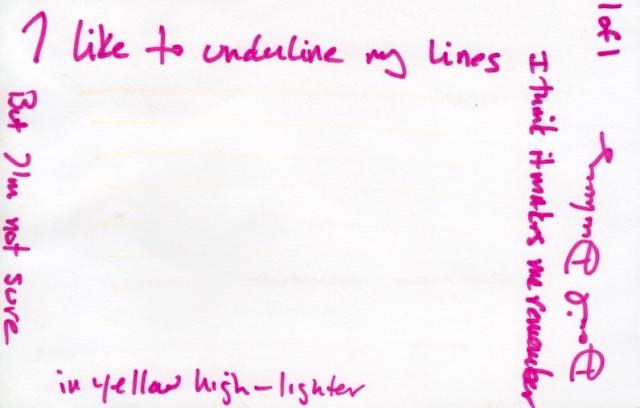 I like to underline my lines
in yellow high-lighter
I think it makes me remember
But I'm not sure
1 of 1